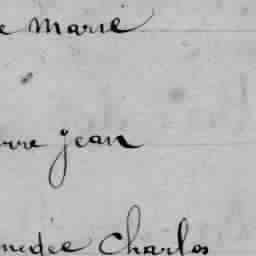 e Marie
rre Jean
medée Charles